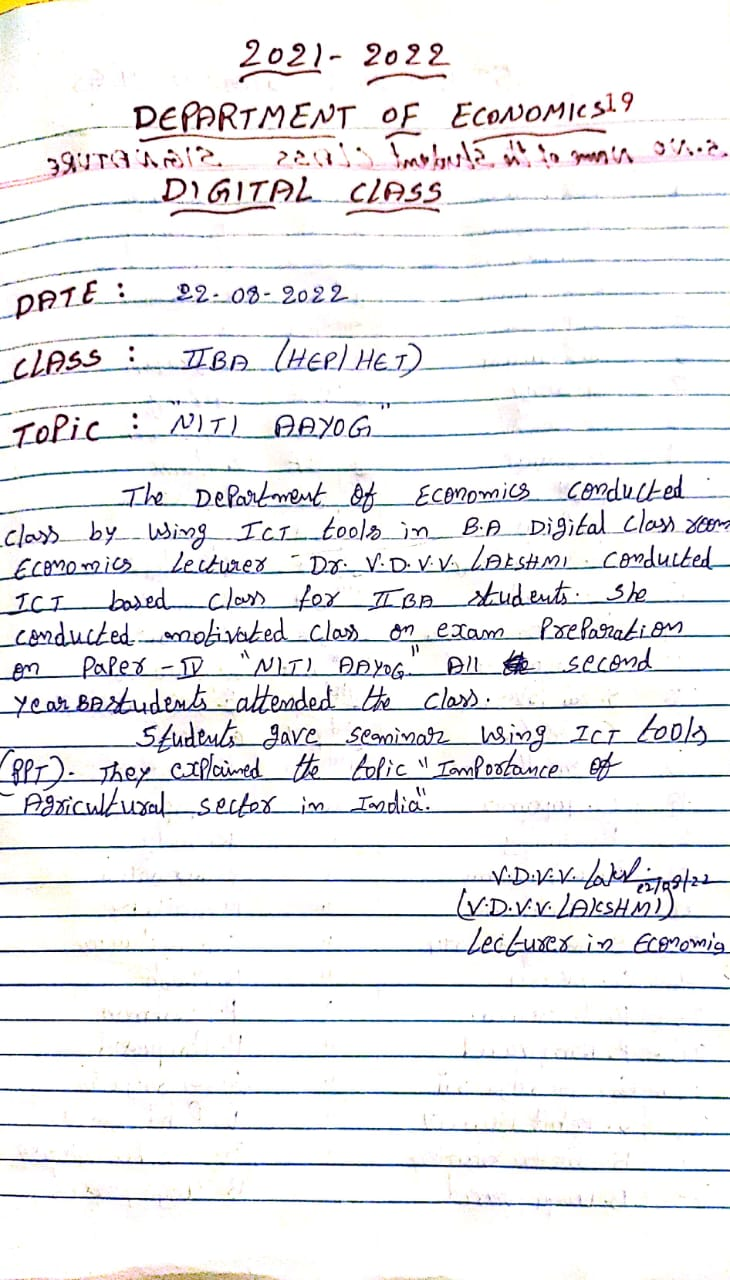 2021-2022
DEPARTMENT OF ECONOMICS 19
S.NO Name of the Student CLASS SIGNATURE
DIGITAL CLASS
DATE : 22-08-2022
CLASS : II BA (HEP/HET)
TOPIC : "NITI AAYOG"
The Department of Economics conducted
class by using ICT tools in B.A Digital Class room
Economics Lecturer - Dr. V.D.V.V. LAKSHMI conducted
ICT based class for II BA students. She
conducted motivated class on exam Preparation
on Paper - IV "NITI AAYOG." All second
year BA students attended the class.
Students gave seminar using ICT tools
(PPT). They explained the topic "Importance of
Agricultural sector in India".
V.D.V.V. Laksh
22/08/22
(V.D.V.V. LAKSHMI)
Lecturer in Economic